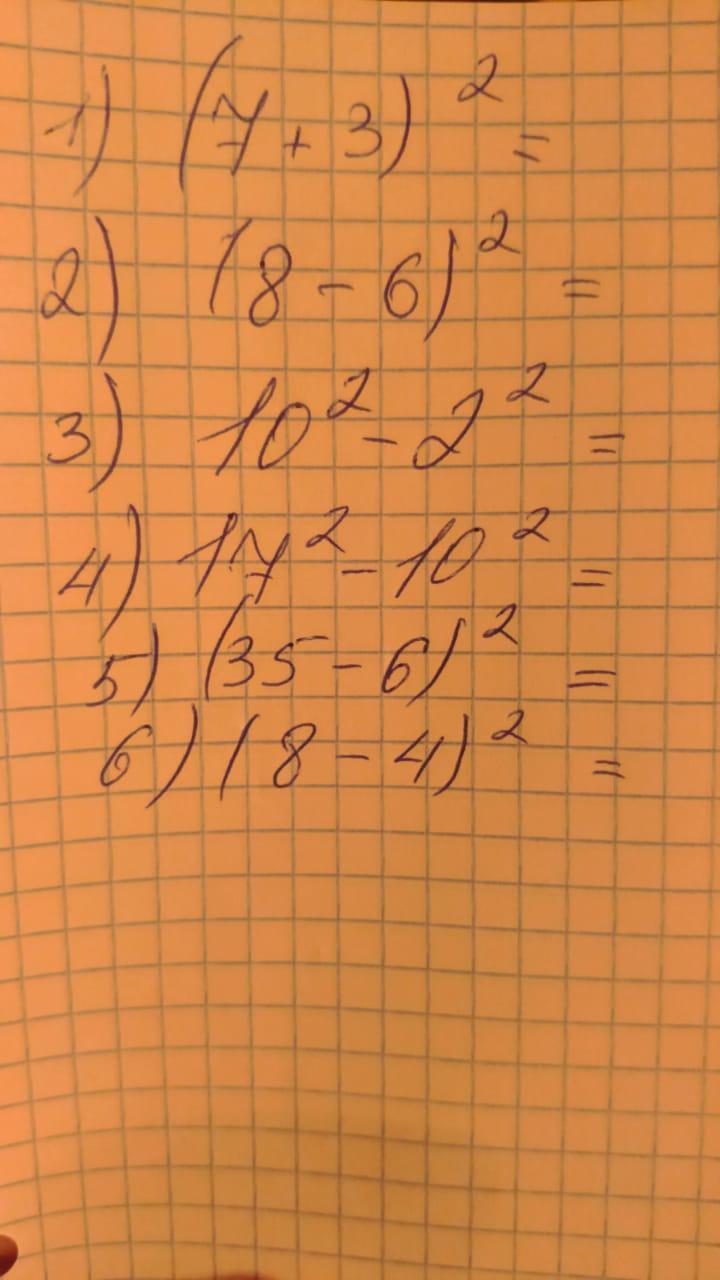 1) (7 + 3)² =
2) (8 - 6)² =
3) 10² - 2² =
4) 17² - 10² =
5) (35 - 6)² =
6) (8 - 4)² =